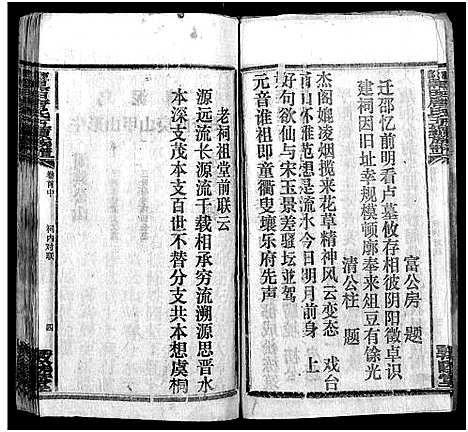 富公房 題
迁邵忆前明看卢墓攸存相彼阴阳徵卓识
建祠因旧址幸规模顿廓奉来俎豆有馀光
清公柱 題
杰阁媲凌烟揽来花草精神风云变态 戏台
前山林雅范想是流水今日明月前身 上
好句欲仙与宋玉景差骚坛並驾
元音谁祖即童衢叟壤乐府先声
老祠祖堂前联云
源远流长源流千载相承穷流溯源思晋水
本深支茂本支百世不替分支共本想虞桐
卷首中 祠内对联 四